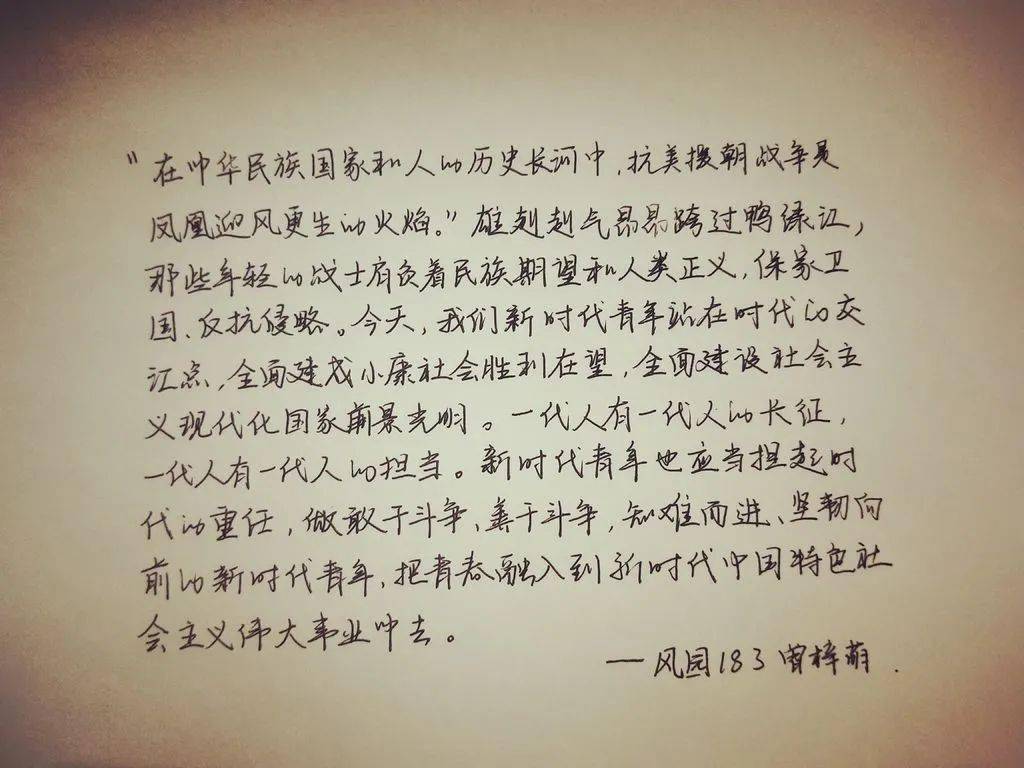 “在中华民族国家和人的历史长河中，抗美援朝战争是
凤凰迎风更生的火焰。”雄赳赳气昂昂跨过鸭绿江，
那些年轻的战士肩负着民族期望和人类正义，保家卫
国、反抗侵略。今天，我们新时代青年站在时代的交
汇点，全面建成小康社会胜利在望，全面建设社会主
义现代化国家前景光明。一代人有一代人的长征，
一代人有一代人的担当。新时代青年也应当担起时
代的重任，做敢于斗争、善于斗争，知难而进、坚韧向
前的新时代青年，把青春融入到新时代中国特色社
会主义伟大事业中去。
——风园183 曾梓萌.